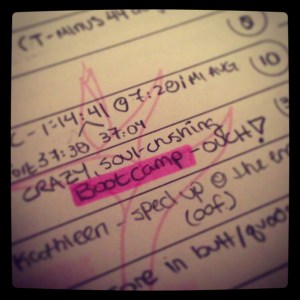 (T-MINUS 44
5
- 1:14:41 @ 7:28/MI AVG
10
37:38 37:04
CRAZY, soul-crushing
BootCamp - OUCH!
Kathleen - sped up @ the end
(oof)
in butt/quads